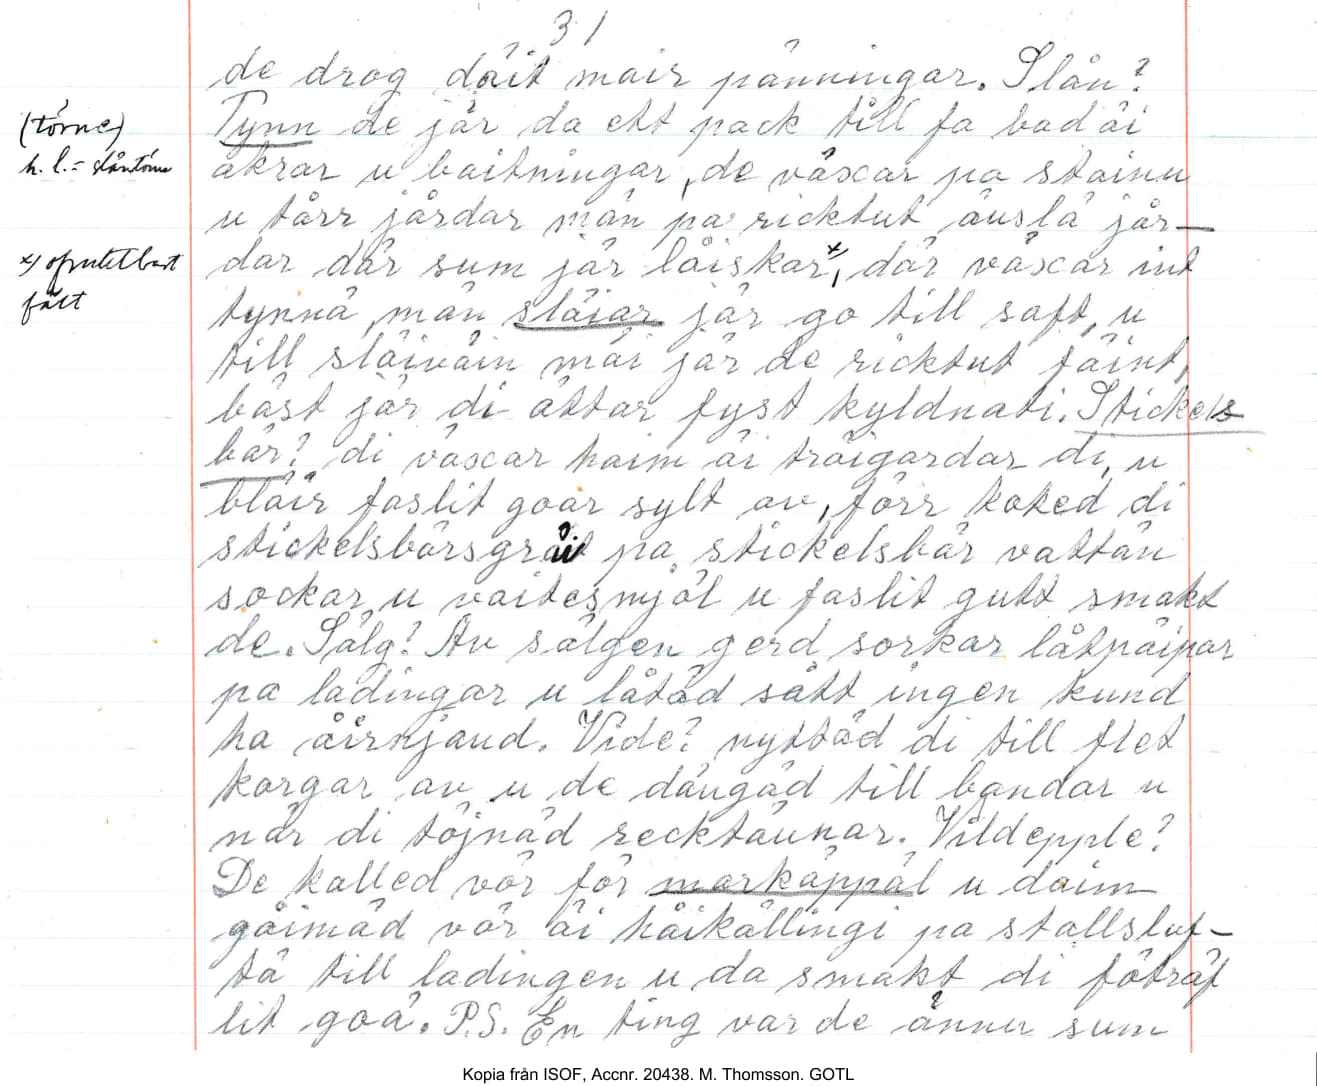 31
de drog däit mair pänningar. Slån?
(törne)
Tynn de jär da ett pack till fa bad äi
h. l. = slåntörne
åkrar u baitningar, de växar pa stainu
u tårr jårdar män pa ricktut äuslä jår-
x) ofruktbart
fält
dar där sum jär läiskar x), där växar int
tynnä, män släiar jär go till saft, u
till släiväin mäi jär de ricktut fäint,
bäst jär di ättar fyst kyldnati. Stickels
bär? di växar haim äi träigardar di, u
bläir faslit goar sylt av, förr koked di
stickelsbärsgräit pa stickelsbär vattän
sockar u vaitesmjöl u faslit gutt smakt
de. Sälg? Av sälgen gerd sorkar låtpäipar
pa ladingar u låtäd sätt ingen kund
ha åirnjaud. Vide? nyttäd di till flet
korgar av u de dängäd till bandar u
när di töjnäd recktäunar. Vildepple?
De kalled vör för markäppäl u daim
gäimäd vör äi häikällingi pa stallsluf-
tä till ladingen u da smakt di föträf
lit goä. P.S. En ting var de ännu sum
Kopia från ISOF, Accnr. 20438. M. Thomsson. GOTL